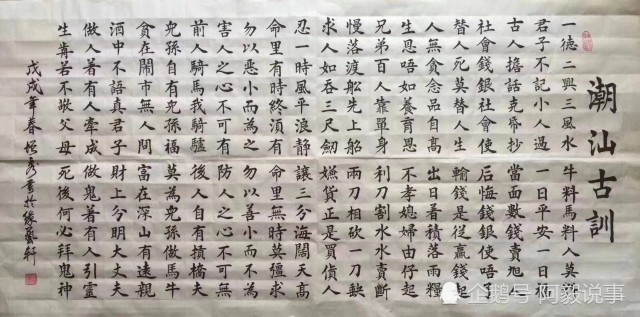 潮汕古訓
一德二興三風水 牛料馬料人莫料
君子不記小人過 一日平安一日福
古人搭話克虧抄 當面數錢賣旭人
社會錢銀社會使 后悔錢銀使唔了
替人死莫替人生 輸錢是從贏錢起
人無貪念品自高 出日着積落雨糧
生恩唔如養育恩 不孝媳婦由仔起
兄弟百人靠單身 利刀割水水賣斷
慢落渡船先上船 兩刀相砍一刀缺
求人如吞三尺劍 嫌貨正是買貨人
忍一時風平浪靜 讓三分海闊天高
命里有時終須有 命里無時莫強求
勿以惡小而為之 勿以善小而不為
害人之心不可有 防人之心不可無
前人騎馬我騎驢 後人自有擔橋夫
兒孫自有兒孫福 莫為兒孫做馬牛
貧在鬧市無人問 富在深山有遠親
酒中不語真君子 財上分明大丈夫
做人着有人牽成 做鬼着有人引靈
生前若不敬父母 死後何必拜鬼神
戊戌年春 書於緣藝軒
企鹅号 阿毅说事